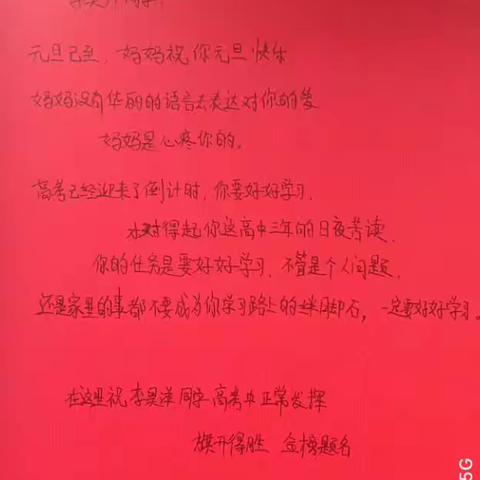 元旦已至，妈妈祝你元旦快乐
妈妈没有华丽的语言去表达对你的爱
妈妈是心疼你的。
高考已经迎来了倒计时，你要好好学习，
对得起你这高中三年的日夜苦读，
你的任务是要好好学习，不管是个人问题，
还是家里的事都不要成为你学习路上的绊脚石，一定要好好学习。
在这里祝李昊洋同学高考中正常发挥
旗开得胜 金榜题名
5G